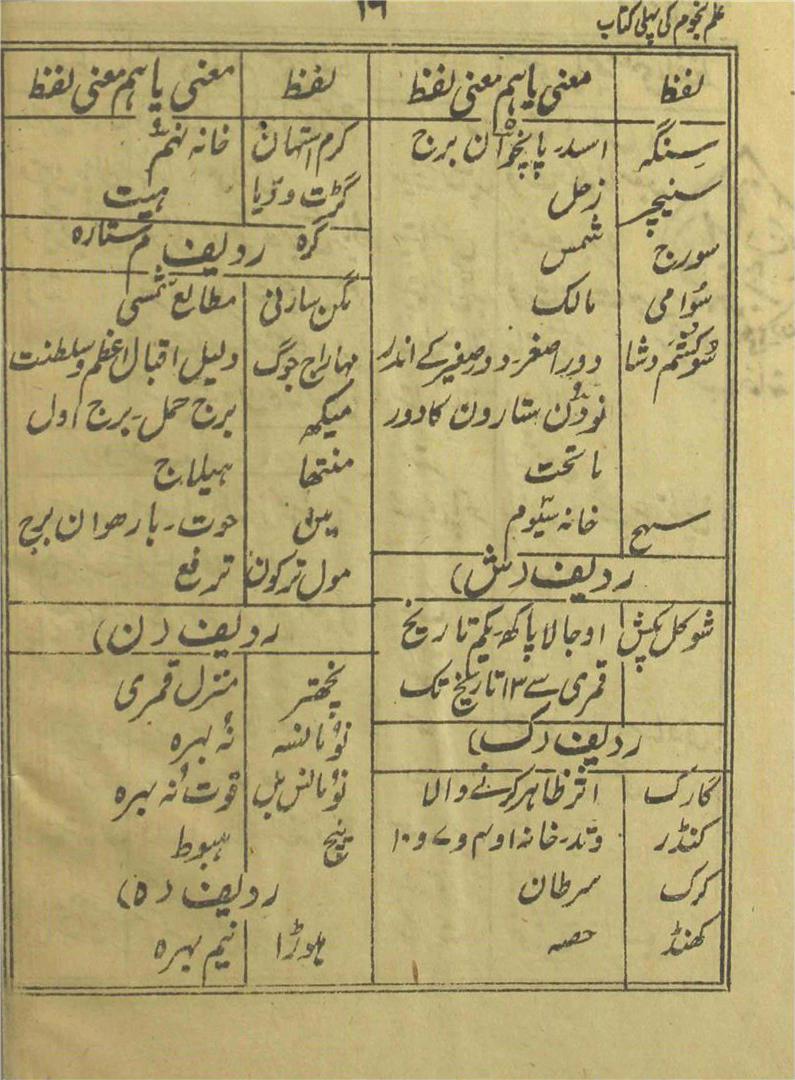 علم نجوم کی پہلی کتاب
۱۶
لفظ معنی یا ہم معنی لفظ
سنگہ اسد۔ پانچواں برج
سنیچر زحل
سورج شمس
سُوامی مالک
سُوکشم دشا دور اصغر۔ دور صغیر کے اندر
نودن ستارون کا دور
ماتحت
سہج خانہ سیّوم
ردیف (ش)
شوکل پکش اوجالا پاکھ۔ یکم تاریخ
قمری سے ۱۳ تاریخ تک
ردیف (ک)
کارک اثر ظاہر کرنے والا
کنڈر وتد۔ خانہ ۱ و ۴ و ۷ و ۱۰
کرک سرطان
کھنڈ حصہ
لفظ معنی یا ہم معنی لفظ
کرم استھان خانہ نہم
گڑت ودّیا ہیت
گرہ ستارہ
ردیف م
لگن سارنی مطالع شمسی
مہاراج جوگ دلیل اقبال اعظم و سلطنت
میکھ برج حمل۔ برج اول
منتھا ہیلاج
مین حوت۔ بارھوان برج
مول ترکون ترفع
ردیف (ن)
نچھتر منزل قمری
نوُمانسہ نُہ بہرہ
نوُمانس بل قوت نُہ بہرہ
نیچ ہبوط
ردیف (ہ)
ہوڑا نیم بہرہ